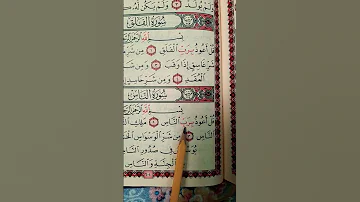 وَلَمْ يُولَدْ وَلَمْ يَكُن لَّهُ
سُورَةُ الْفَلَقِ
بِسْمِ اللَّهِ الرَّحْمَٰنِ
قُلْ أَعُوذُ بِرَبِّ الْفَلَقِ مِن شَرِّ
شَرِّ غَاسِقٍ إِذَا وَقَبَ وَمِن شَرِّ
الْعُقَدِ وَمِن شَرِّ حَاسِدٍ
سُورَةُ النَّاسِ
بِسْمِ اللَّهِ الرَّحْمَٰنِ
قُلْ أَعُوذُ بِرَبِّ النَّاسِ مَلِكِ
النَّاسِ مِن شَرِّ الْوَسْوَاسِ
يُوَسْوِسُ فِي صُدُورِ النَّاسِ
الْجِنَّةِ وَالنَّاسِ